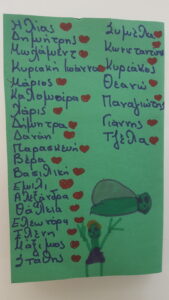 Ηλίας
Δημήτρης
Μωχάμεντ
Κυριακή Ιωάννα
Μάριος
Καλομοίρα
Λάρις
Δήμητρα
Δανάη
Παρασκευή
Βέρα
Βασιλική
Εμιλι
Αλεξάνδρα
Θάλεια
Ελεωνόρα
Ελένη
Μάξιμος
Στάθης
Συμέλα
Κωνσταντίνος
Κυριάκος
Θεανώ
Παναγιώτης
Γιάννης
Τζέλα